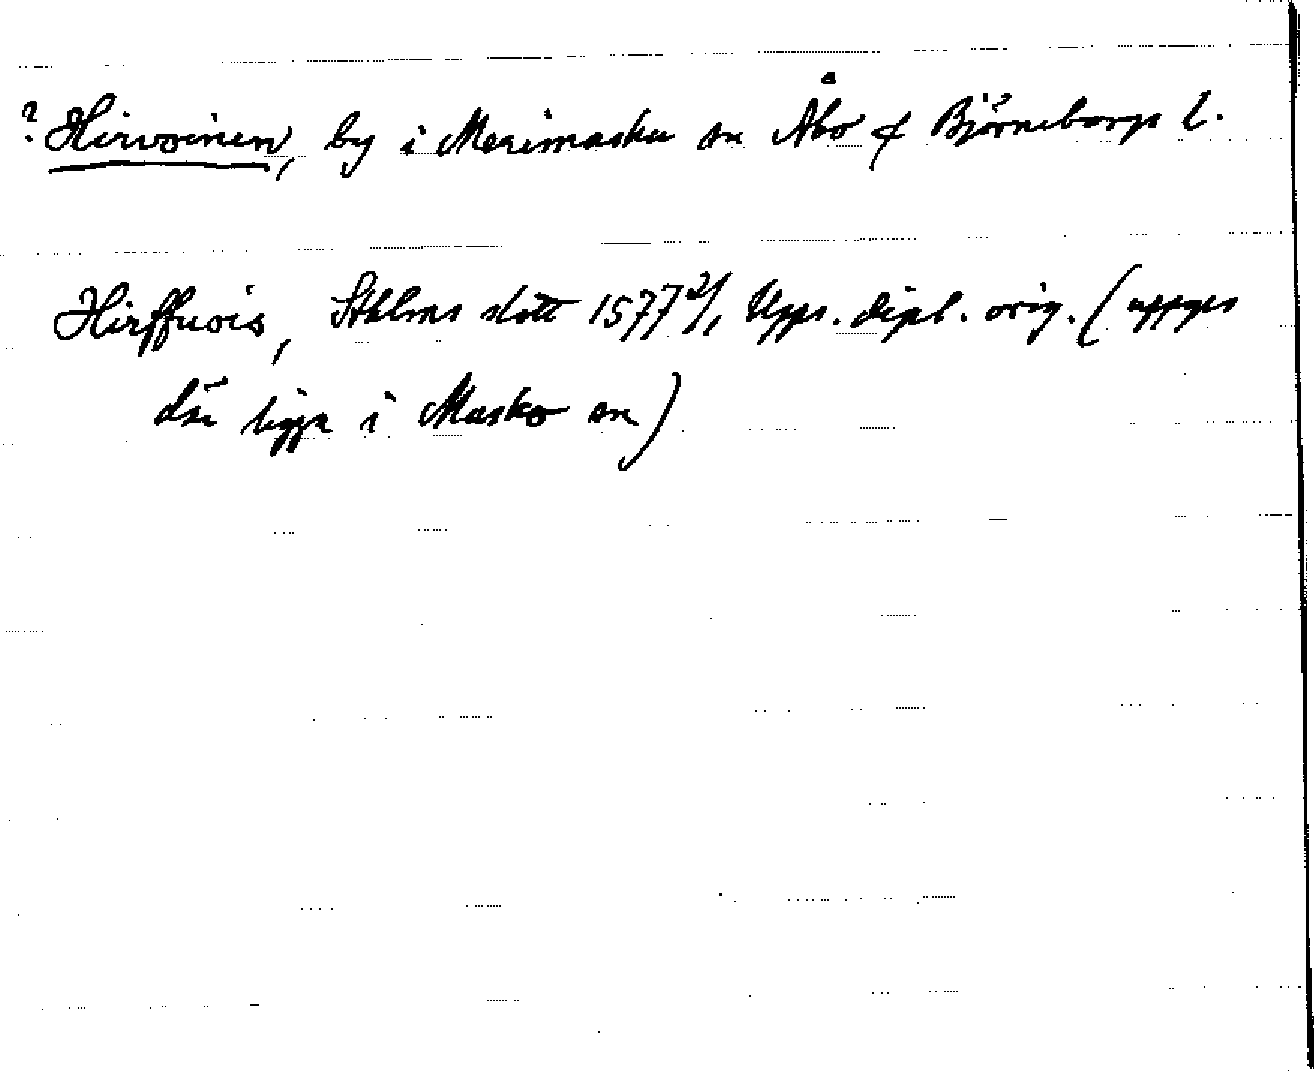 ? Hirvoinen, by i Merimasku sn Åbo & Björneborgs l.
Hirffuois, Sthlms slott 1577 2/1 Upps. dipl. orig. (uppges
där ligga i Masko sn)